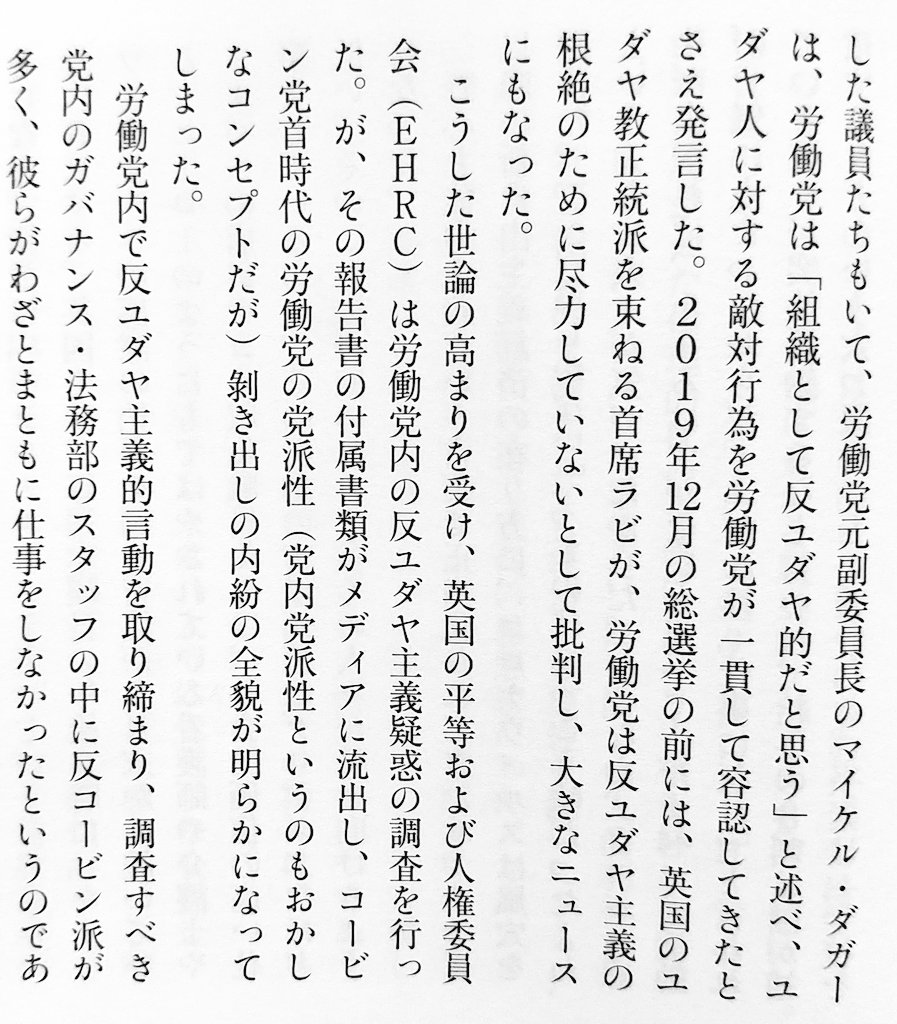 した議員たちもいて、労働党元副委員長のマイケル・ダガー
は、労働党は「組織として反ユダヤ的だと思う」と述べ、ユ
ダヤ人に対する敵対行為を労働党が一貫して容認してきたと
さえ発言した。2019年12月の総選挙の前には、英国のユ
ダヤ教正統派を束ねる首席ラビが、労働党は反ユダヤ主義の
根絶のために尽力していないとして批判し、大きなニュース
にもなった。
こうした世論の高まりを受け、英国の平等および人権委員
会（EHRC）は労働党内の反ユダヤ主義疑惑の調査を行っ
た。が、その報告書の付属書類がメディアに流出し、コービ
ン党首時代の労働党の党派性（党内党派性というのもおかし
なコンセプトだが）剝き出しの内紛の全貌が明らかになって
しまった。
労働党内で反ユダヤ主義的言動を取り締まり、調査すべき
党内のガバナンス・法務部のスタッフの中に反コービン派が
多く、彼らがわざとまともに仕事をしなかったというのであ